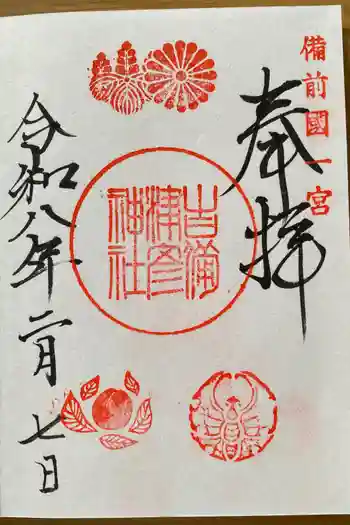 備前國一宮
奉拝
吉備
津彦
神社
令和八年二月七日